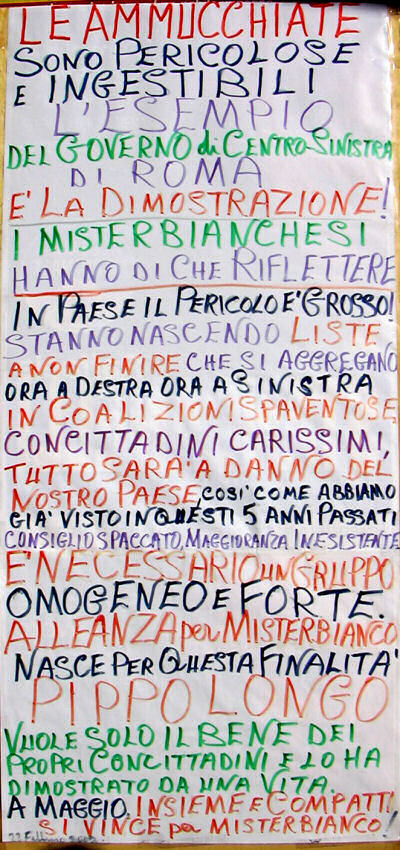 LE AMMUCCHIATE
SONO PERICOLOSE
E INGESTIBILI
L'ESEMPIO
DEL GOVERNO di CENTRO-SINISTRA
DI ROMA
E' LA DIMOSTRAZIONE!
I MISTERBIANCHESI
HANNO DI CHE RIFLETTERE
IN PAESE IL PERICOLO E' GROSSO!
STANNO NASCENDO LISTE
A NON FINIRE CHE SI AGGREGANO
ORA A DESTRA ORA A SINISTRA
IN COALIZIONI SPAVENTOSE,
CONCITTADINI CARISSIMI,
TUTTO SARA' A DANNO DEL
NOSTRO PAESE, COSI' COME ABBIAMO
GIA' VISTO IN QUESTI 5 ANNI PASSATI
CONSIGLIO SPACCATO, MAGGIORANZA INESISTENTE
E' NECESSARIO UN GRUPPO
OMOGENEO E FORTE.
ALLEANZA per MISTERBIANCO
NASCE PER QUESTA FINALITA'
PIPPO LONGO
VUOLE SOLO IL BENE DEI
PROPRI CONCITTADINI E LO HA
DIMOSTRATO DA UNA VITA.
A MAGGIO, INSIEME E COMPATTI!
SI VINCE per MISTERBIANCO!